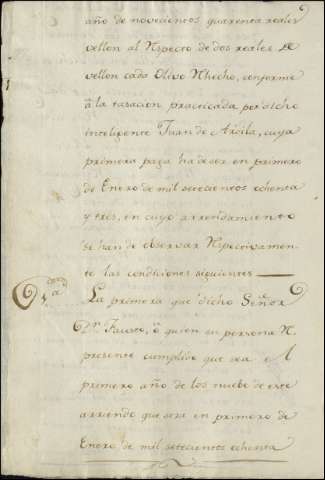 año de novecientos quarenta reales
vellon al Respecto de dos reales de
vellon cada Olivo Rhecho, conforme
â la tasacion practicada por dicho
inteligente Juan de Avila, cuya
primera paga ha de ser en primero
de Enero de mil setecientos ochenta
y tres, en cuyo arrendamiento
se han de observar Respectivamen-
te las condiciones siguientes
Condⁿ
1ª
La primera que dicho Señor
Dⁿ. Fausto, ô quien su persona R.
presente cumplido que sea el
primero año de los nuebe de este
arriendo que sera en primero de
Enero de mil setecientos ochenta